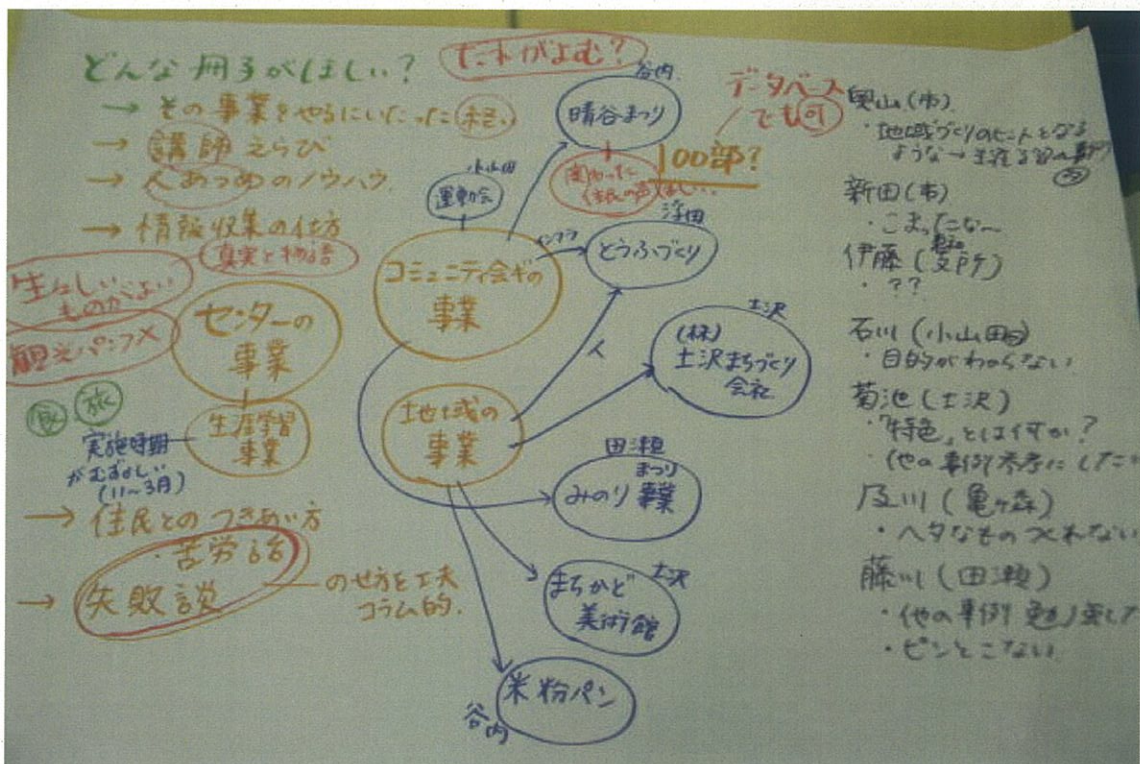 どんな冊子がほしい?
だれがよむ?
→ その事業をやるにいたった経い
→ 講師えらび
→ 人あつめのノウハウ
→ 情報収集の仕方
真実と物語
生々しい
ものがよい
観光パンフ×
センターの
事業
食 旅
生涯学習
事業
実施時期
がむずかしい
(11~3月)
→ 住民とのつきあい方
・苦労話
→ 失敗談
のせ方を工夫
コラム的.
小山田
運動会
コミュニティ会ギの
事業
地域の
事業
谷内
晴谷まつり
関わった
住民の声ほしい…
データベース
でも可
100部?
インフラ
浮田
とうふづくり
人
土沢
(株)
土沢まちづくり
会社
田瀬
まつり
みのり事業
土沢
まちかど
美術館
米粉パン
谷内
奥山(市)
・地域づくりのヒントとなる
ような→生涯学習の
新田(市)
・こまったな~
伊藤(
・??
石川(小山田)
・目的がわからない
菊池(土沢)
・「特色」とは何か?
・他の事例参考にした
及川(亀ヶ森)
・ヘタなものつくれない
藤川(田瀬)
・他の事例勉強した
・ピンとこない